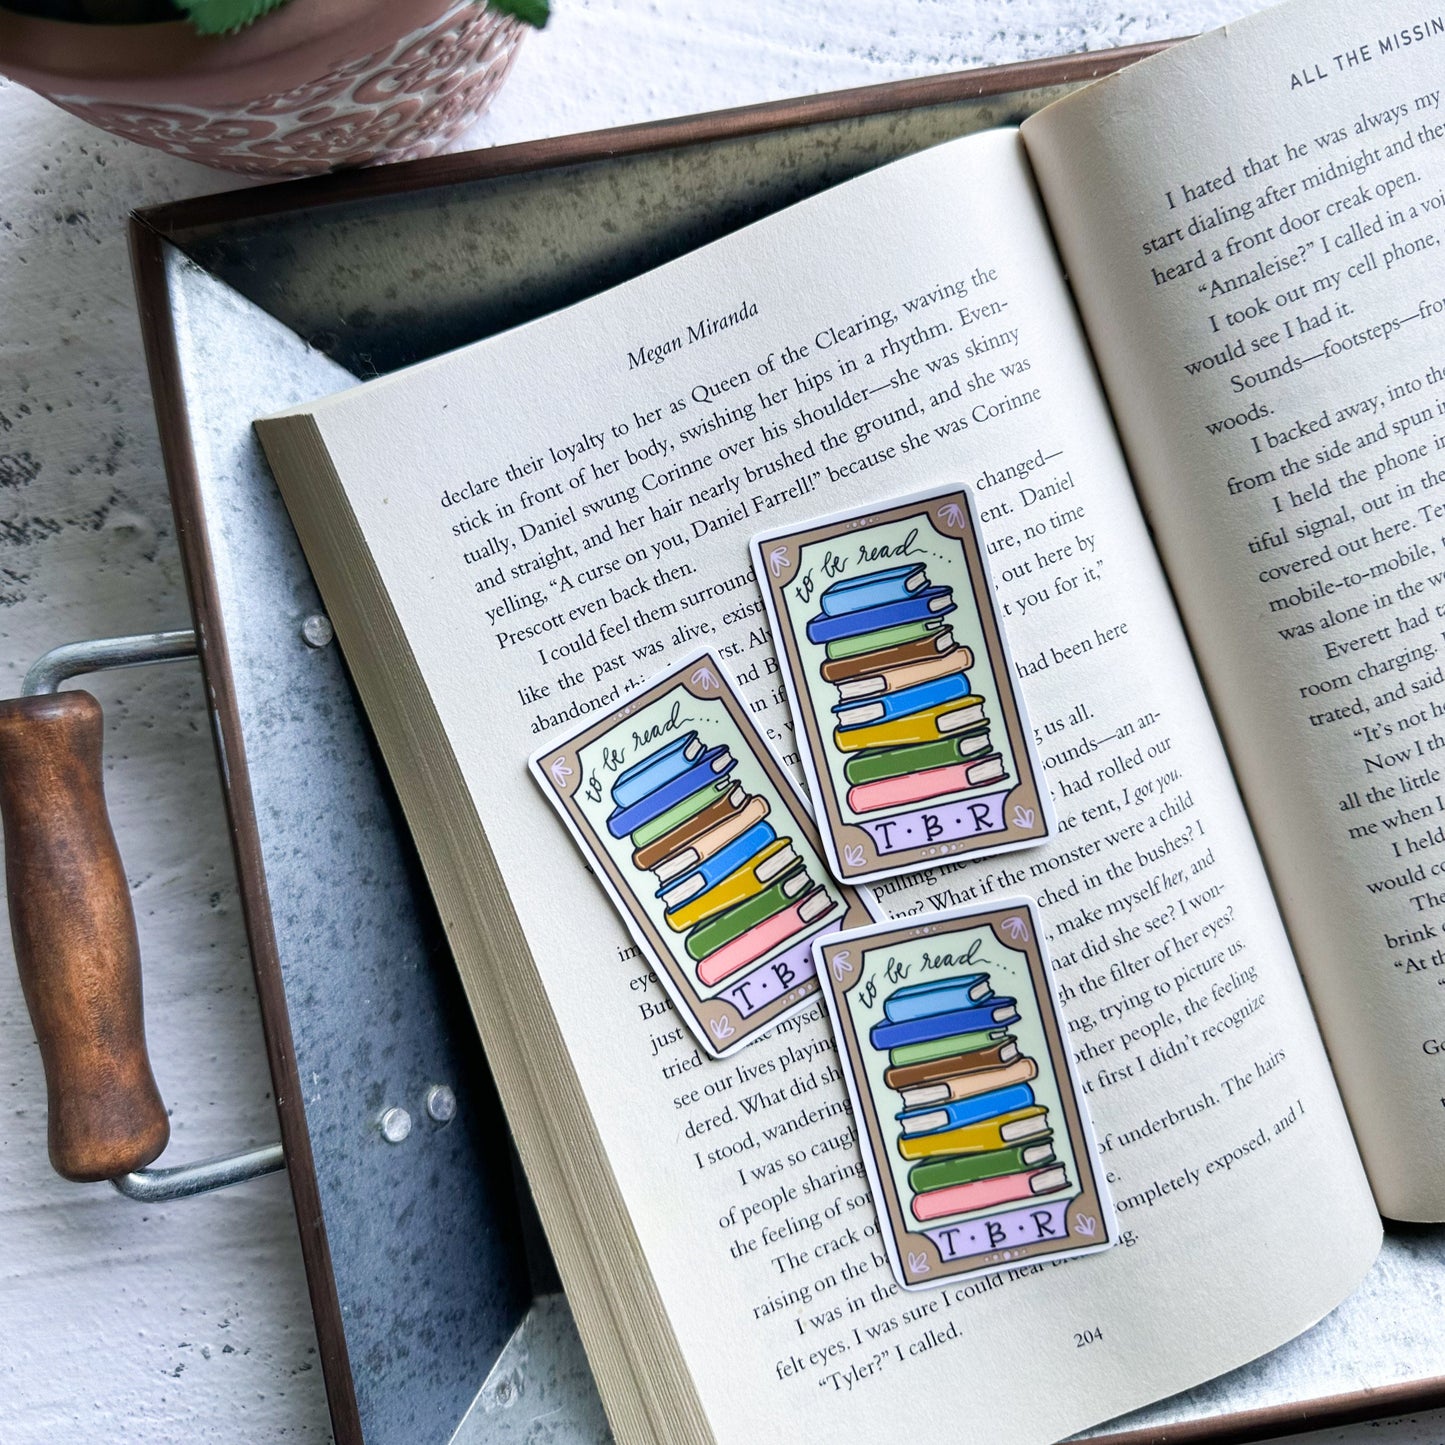 Megan Miranda
declare their loyalty to her as Queen of the Clearing, waving the
stick in front of her body, swishing her hips in a rhythm. Even-
tually, Daniel swung Corinne over his shoulder—she was skinny
and straight, and her hair nearly brushed the ground, and she was
yelling, “A curse on you, Daniel Farrell!” because she was Corinne
Prescott even back then.
I could feel them surround changed—
like the past was alive, exist ent. Daniel
abandoned irst. Al ure, no time
nd B , out here by
n if t you for it,”
had been here
g us all.
ounds—an an-
had rolled our
he tent, I got you.
pulling me monster were a child
ing? What if the ched in the bushes? I
, make myself her, and
im hat did she see? I won-
eye gh the filter of her eyes?
But ng, trying to picture us.
just other people, the feeling
tried myself t first I didn’t recognize
see our lives playing
dered. What did sh
I stood, wandering of underbrush. The hairs
I was so caugh e.
of people sharing ompletely exposed, and I
the feeling of so
The crack of
raising on the b
I was in the ng.
felt eyes. I was sure I could hear
“Tyler?” I called.
204
to be read...
T·B·R
to be read...
T·B·
to be read...
T·B·R
ALL THE MISSIN
I hated that he was always my
start dialing after midnight and the
heard a front door creak open.
“Annaleise?” I called in a voi
I took out my cell phone,
would see I had it.
Sounds—footsteps—fro
woods.
I backed away, into the
from the side and spun i
I held the phone i
tiful signal, out in the
covered out here. Te
mobile-to-mobile,
was alone in the w
Everett had t
room charging.
trated, and said
“It’s not h
Now I th
all the little
me when I
I held
would co
The
brink
“At th
Go